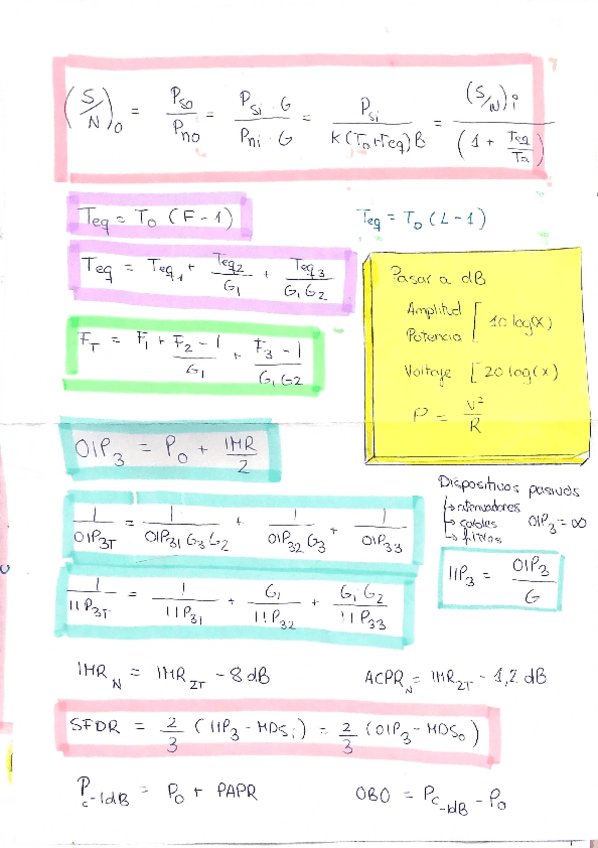 (S/N)₀ = Pso/Pno = Psi · G / Pni · G = Psi / K(To+Teq)B = (S/N)i / (1 + Teq/Ta)
Teq = To (F - 1)
Teq = To (L - 1)
Teq = Teq1 + Teq2/G1 + Teq3/G1 G2
F_T = F1 + F2 - 1/G1 + F3 - 1/G1 G2
Pasar a dB
Amplitud
Potencia [ 10 log(x)
Voltaje [ 20 log(x)
P = V²/R
OIP3 = Po + IMR/2
Dispositivos pasivos
↳ atenuadores
↳ cables OIP3 = ∞
↳ filtros
1/OIP3T = 1/OIP31 G3 G2 + 1/OIP32 G3 + 1/OIP33
IIP3 = OIP3/G
1/IIP3T = 1/IIP31 + G1/IIP32 + G1 G2/IIP33
IMR_N = IMR_2T - 8 dB
ACPR_N = IMR_2T - 1,2 dB
SFDR = 2/3 (IIP3 - MDSi) = 2/3 (OIP3 - MDSo)
Pc-1dB = Po + PAPR
OBO = Pc-1dB - Po